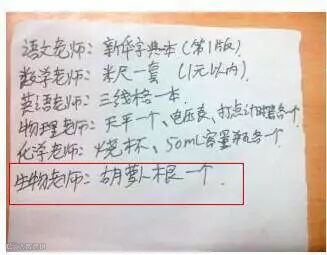 语文老师：新华字典一本（第11版）
数学老师：米尺一套（1元以内）
英语老师：三线格一本.
物理老师：天平一个、电压表、打点计时器各一个
化学老师：烧杯、50mL容量瓶各一个
生物老师：胡萝卜根一个.